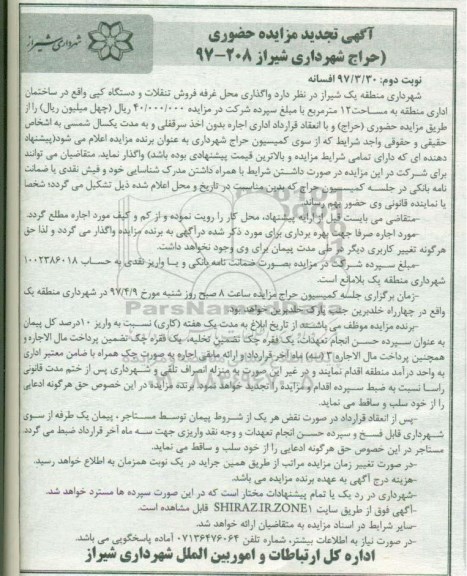 آگهی تجدید مزایده حضوری
(حراج شهرداری شیراز ۲۰۸-۹۷
شهرداری شیراز
نوبت دوم: ۹۷/۳/۳۰ افسانه
شهرداری منطقه یک شیراز در نظر دارد واگذاری محل غرفه فروش تنقلات و دستگاه کپی واقع در ساختمان
اداری منطقه به مساحت۱۲ مترمربع با مبلغ سپرده شرکت در مزایده ۴۰/۰۰۰/۰۰۰ ریال (چهل میلیون ریال) را از
طریق مزایده حضوری (حراج) و با انعقاد قرارداد اداری اجاره بدون اخذ سرقفلی و به مدت یکسال شمسی به اشخاص
حقیقی و حقوقی واجد شرایط که از سوی کمیسیون حراج شهرداری به عنوان برنده مزایده اعلام می شود(پیشنهاد
دهنده ای که دارای تمامی شرایط مزایده و بالاترین قیمت پیشنهادی بوده باشد) واگذار نماید. متقاضیان می توانند
برای شرکت در این مزایده در صورت داشتن شرایط با همراه داشتن مدرک شناسایی خود و فیش نقدی یا ضمانت
نامه بانکی در جلسه کمیسیون حراج که بدین مناسبت در تاریخ و محل اعلام شده ذیل تشکیل می گردد؛ شخصا
یا نماینده قانونی وی حضور بهم رساند.
-متقاضی می بایست قبل از ارائه پیشنهاد، محل کار را رویت نموده و از کم و کیف مورد اجاره مطلع گردد.
-مورد اجاره صرفا جهت بهره برداری برای مورد ذکر شده درآگهی به برنده مزایده واگذار می گردد و لذا حق
هرگونه تغییر کاربری دیگر در طی مدت پیمان برای وی وجود نخواهد داشت.
-مبلغ سپرده شرکت در مزایده بصورت ضمانت نامه بانکی و یا واریز نقدی به حساب ۱۰۰۲۳۸۶۰۱۸
شهرداری منطقه یک بلامانع است.
-زمان برگزاری جلسه کمیسیون حراج مزایده ساعت ۸ صبح روز شنبه مورخ ۹۷/۴/۹ در شهرداری منطقه یک
واقع در چهارراه خلدبرین جنب پارک خلدبرین خواهد بود.
-برنده مزایده موظف می باشد از تاریخ ابلاغ به مدت یک هفته (کاری) نسبت به واریز ۱۰درصد کل پیمان
به عنوان سپرده حسن انجام تعهدات، یک فقره چک تضمین تخلیه، یک فقره چک تضمین پرداخت مال الاجاره و
همچنین پرداخت مال الاجاره۳(سه) ماه آخر قرارداد و ارائه مابقی اجاره به صورت چک همراه با ضامن معتبر اداری
به واحد درآمد منطقه اقدام نمایند و در غیر این صورت به منزله انصراف تلقی و شهرداری پس از ختم مدت قانونی
راسا نسبت به ضبط سپرده اقدام و مزایده را تجدید خواهد نمود. برنده مزایده در این خصوص حق هرگونه ادعایی
را از خود سلب و ساقط می نماید.
-پس از انعقاد قرارداد در صورت نقض هر یک از شروط پیمان توسط مستاجر، پیمان یک طرفه از سوی
شهرداری قابل فسخ و سپرده حسن انجام تعهدات و وجه نقد واریزی جهت سه ماه آخر قرارداد ضبط می گردد.
مستاجر در این خصوص حق هرگونه ادعایی را از خود سلب و ساقط می نماید.
-در صورت تغییر زمان مزایده مراتب از طریق همین جراید در یک نوبت همزمان به اطلاع خواهد رسید.
-هزینه درج آگهی به عهده برنده مزایده می باشد.
-شهرداری در رد یک یا تمام پیشنهادات مختار است که در این صورت سپرده ها مسترد خواهد شد.
-آگهی فوق از طریق سایت SHIRAZ.IR.ZONE۱ قابل مشاهده است.
-سایر شرایط در اسناد مزایده به متقاضیان ارائه خواهد شد.
-در صورت نیاز به اطلاعات بیشتر، شماره تلفن ۰۷۱۳۶۴۷۶۰۶۴ آماده پاسخگویی می باشد.
اداره کل ارتباطات و اموربین الملل شهرداری شیراز